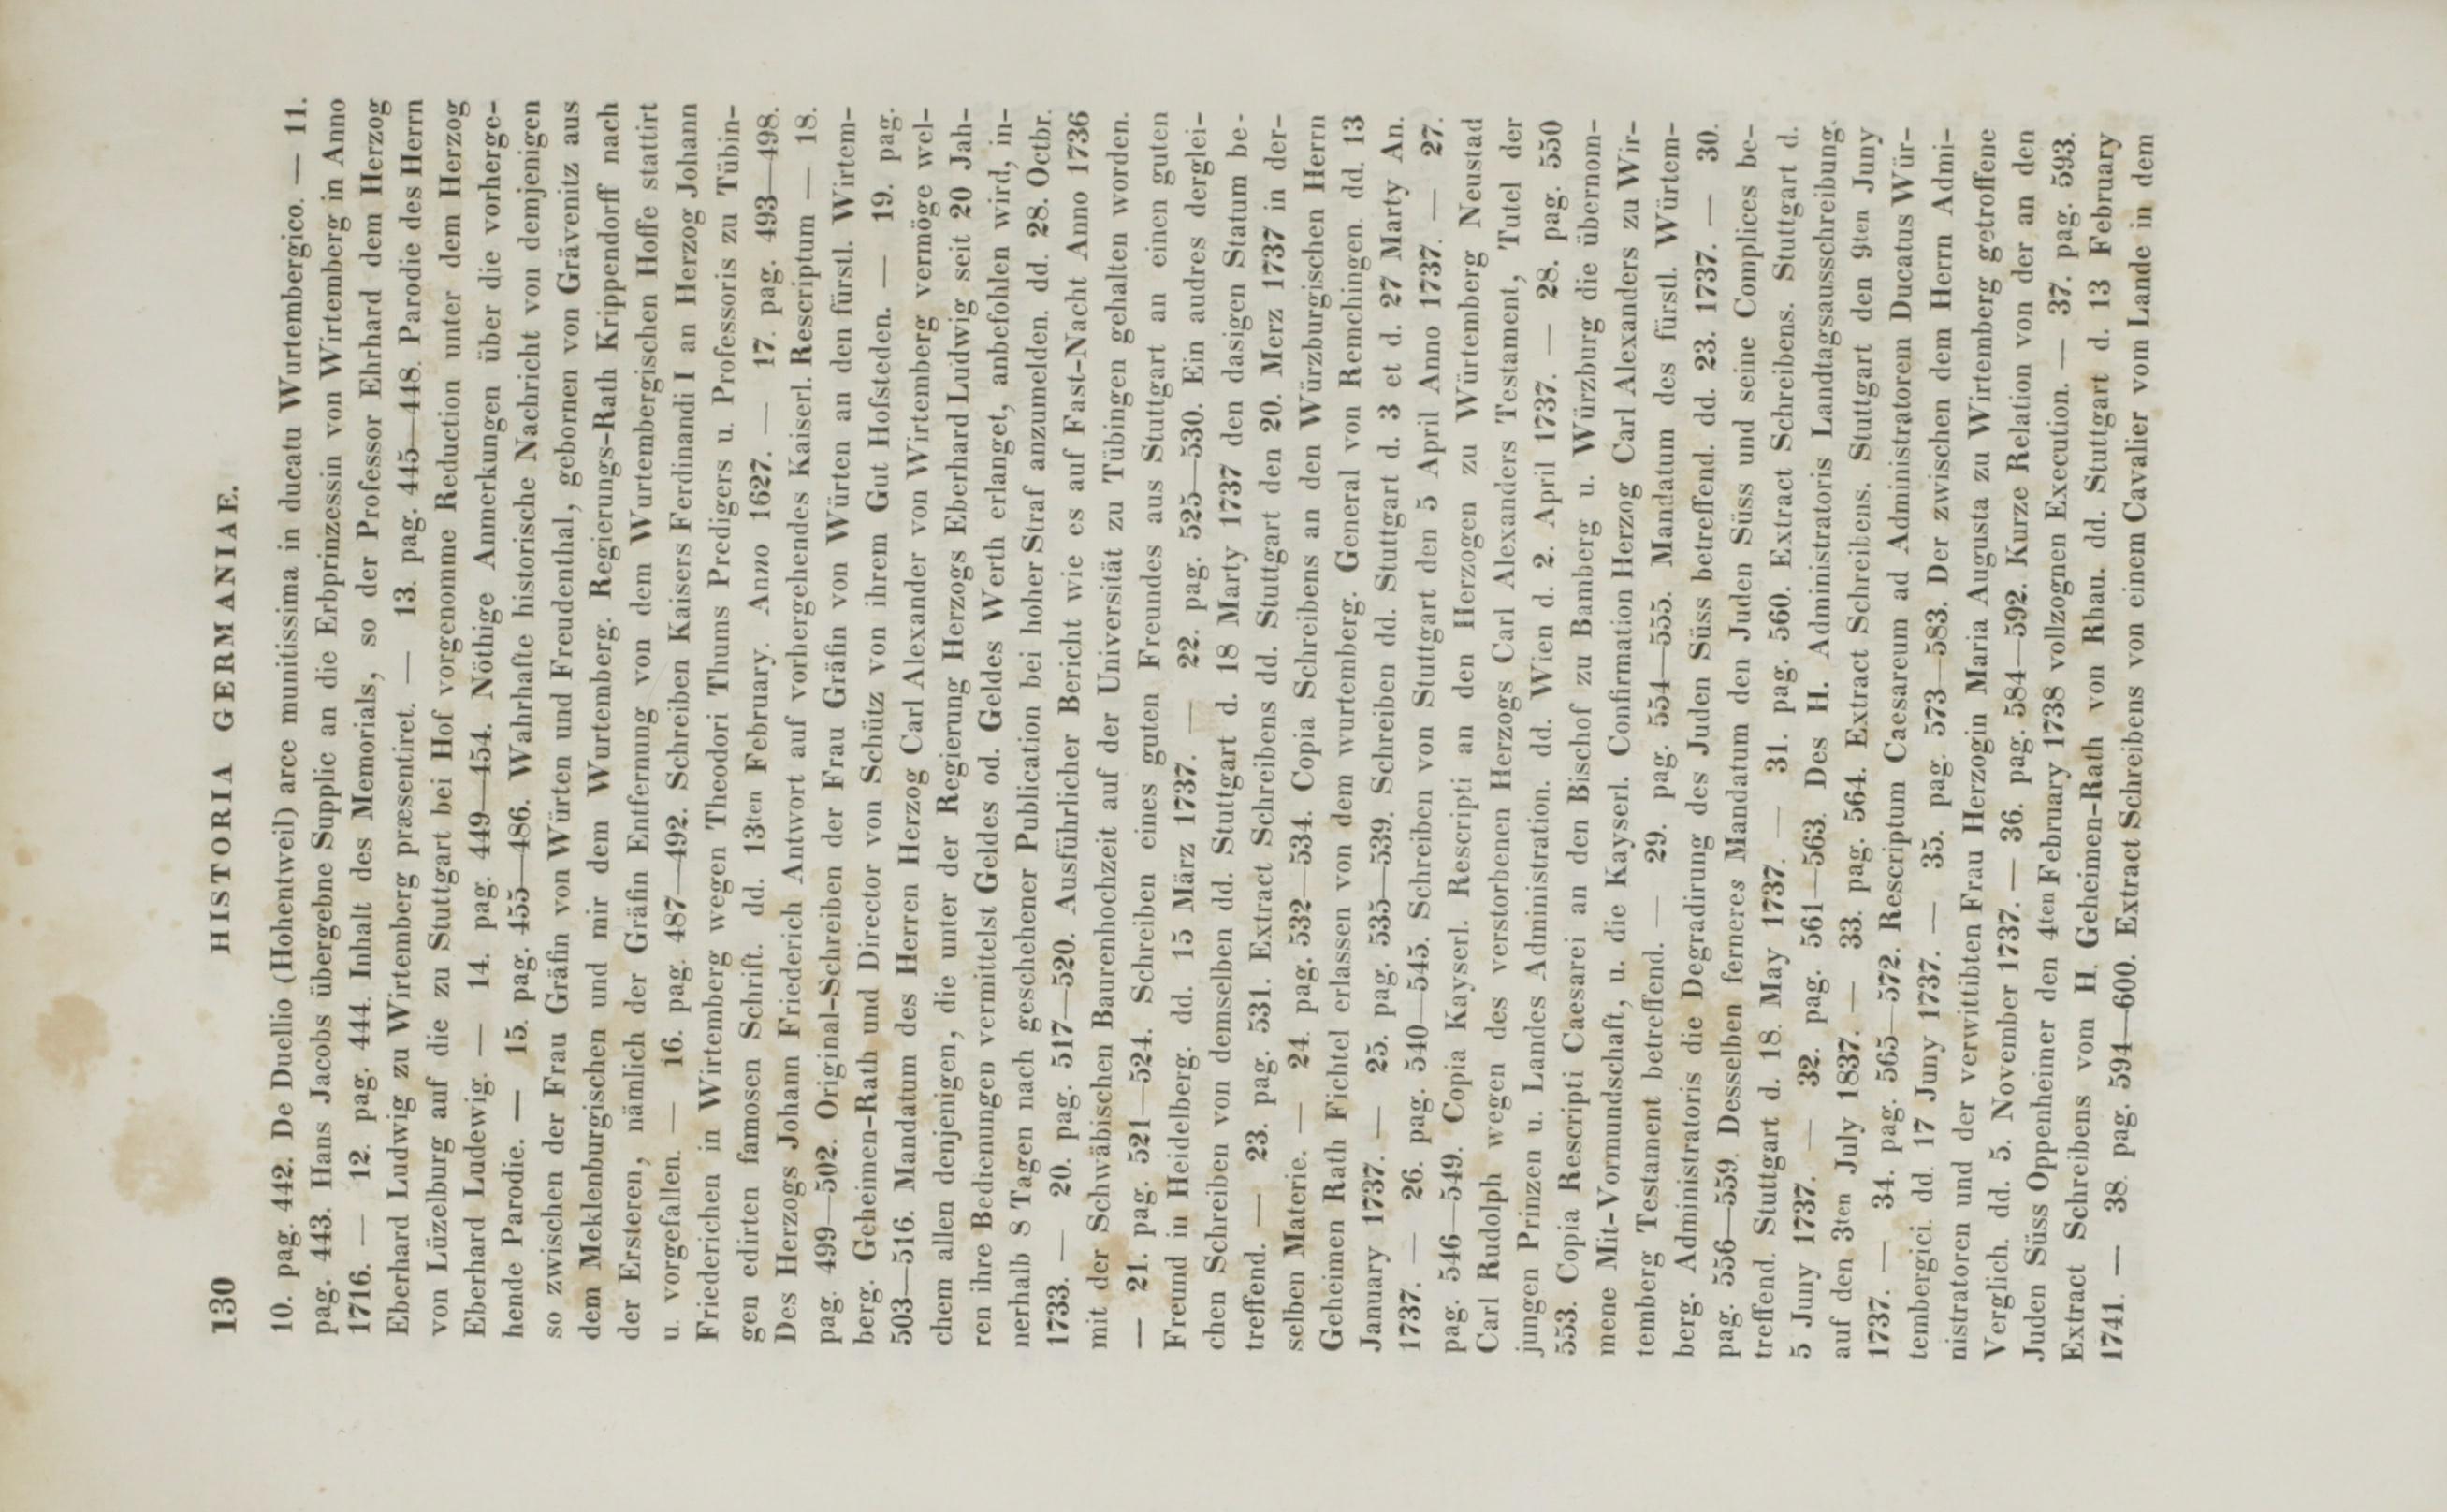 130 HISTORIA GERMANIAE.
10. pag. 442. De Duellio (Hohentweil) arce munitissima in ducatu Wurtembergico. — 11.
pag. 443. Hans Jacobs übergebne Supplic an die Erbprinzessin von Wirtemberg in Anno
1716. — 12. pag. 444. Inhalt des Memorials, so der Professor Ehrhard dem Herzog
Eberhard Ludwig zu Wirtemberg præsentiret. — 13. pag. 445—448. Parodie des Herrn
von Lüzelburg auf die zu Stuttgart bei Hof vorgenomme Reduction unter dem Herzog
Eberhard Ludewig. — 14. pag. 449—454. Nöthige Anmerkungen über die vorherge-
hende Parodie. — 15. pag. 455—486. Wahrhafte historische Nachricht von demjenigen
so zwischen der Frau Gräfin von Würten und Freudenthal, gebornen von Grävenitz aus
dem Meklenburgischen und mir dem Wurtemberg. Regierungs-Rath Krippendorff nach
der Ersteren, nämlich der Gräfin Entfernung von dem Wurtembergischen Hoffe stattirt
u. vorgefallen. — 16. pag. 487—492. Schreiben Kaisers Ferdinandi I an Herzog Johann
Friederichen in Wirtemberg wegen Theodori Thums Predigers u. Professoris zu Tübin-
gen edirten famosen Schrift. dd. 13ten February. Anno 1627. — 17. pag. 493—498.
Des Herzogs Johann Friederich Antwort auf vorhergehendes Kaiserl. Rescriptum — 18.
pag. 499—502. Original-Schreiben der Frau Gräfin von Würten an den fürstl. Wirtem-
berg. Geheimen-Rath und Director von Schütz von ihrem Gut Hofsteden. — 19. pag.
503—516. Mandatum des Herren Herzog Carl Alexander von Wirtemberg vermöge wel-
chem allen denjenigen, die unter der Regierung Herzogs Eberhard Ludwig seit 20 Jah-
ren ihre Bedienungen vermittelst Geldes od. Geldes Werth erlanget, anbefohlen wird, in-
nerhalb 8 Tagen nach geschechener Publication bei hoher Straf anzumelden. dd. 28. Octbr.
1733. — 20. pag. 517—520. Ausführlicher Bericht wie es auf Fast-Nacht Anno 1736
mit der Schwäbischen Baurenhochzeit auf der Universität zu Tübingen gehalten worden.
— 21. pag. 521—524. Schreiben eines guten Freundes aus Stuttgart an einen guten
Freund in Heidelberg. dd. 15 März 1737. — 22. pag. 525—530. Ein audres derglei-
chen Schreiben von demselben dd. Stuttgart d. 18 Marty 1737 den dasigen Statum be-
treffend. — 23. pag. 531. Extract Schreibens dd. Stuttgart den 20. Merz 1737 in der-
selben Materie. — 24. pag. 532—534. Copia Schreibens an den Würzburgischen Herrn
Geheimen Rath Fichtel erlassen von dem wurtemberg. General von Remchingen. dd. 13
January 1737. — 25. pag. 535—539. Schreiben dd. Stuttgart d. 3 et d. 27 Marty An.
1737. — 26. pag. 540—545. Schreiben von Stuttgart den 5 April Anno 1737. — 27.
pag. 546—549. Copia Kayserl. Rescripti an den Herzogen zu Würtemberg Neustad
Carl Rudolph wegen des verstorbenen Herzogs Carl Alexanders Testament, Tutel der
jungen Prinzen u. Landes Administration. dd. Wien d. 2. April 1737. — 28. pag. 550
553. Copia Rescripti Caesarei an den Bischof zu Bamberg u. Würzburg die übernom-
mene Mit-Vormundschaft, u. die Kayserl. Confirmation Herzog Carl Alexanders zu Wir-
temberg Testament betreffend. — 29. pag. 554—555. Mandatum des fürstl. Würtem-
berg. Administratoris die Degradirung des Juden Süss betreffend. dd. 23. 1737. — 30.
pag. 556—559. Desselben ferneres Mandatum den Juden Süss und seine Complices be-
treffend. Stuttgart d. 18. May 1737. — 31. pag. 560. Extract Schreibens. Stuttgart d.
5 Juny 1737. — 32. pag. 561—563. Des H. Administratoris Landtagsausschreibung.
auf den 3ten July 1837. — 33. pag. 564. Extract Schreibens. Stuttgart den 9ten Juny
1737. — 34. pag. 565—572. Rescriptum Caesareum ad Administratorem Ducatus Wür-
tembergici. dd. 17 Juny 1737. — 35. pag. 573—583. Der zwischen dem Herrn Admi-
nistratoren und der verwittibten Frau Herzogin Maria Augusta zu Wirtemberg getroffene
Verglich. dd. 5. November 1737. — 36. pag. 584—592. Kurze Relation von der an den
Juden Süss Oppenheimer den 4ten February 1738 vollzognen Execution. — 37. pag. 593.
Extract Schreibens vom H. Geheimen-Rath von Rhau. dd. Stuttgart d. 13 February
1741. — 38. pag. 594—600. Extract Schreibens von einem Cavalier vom Lande in dem